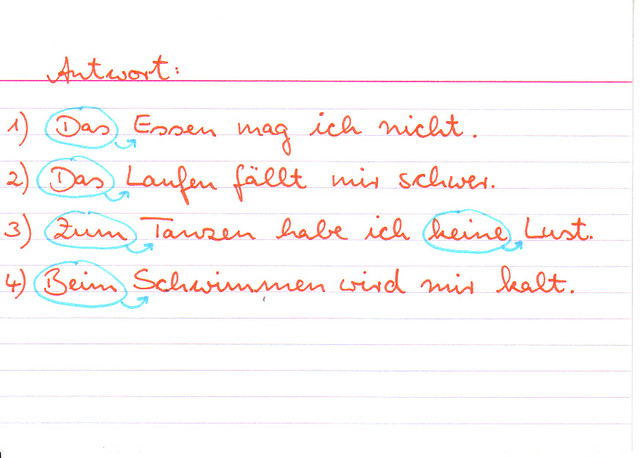 Antwort:
1) Das Essen mag ich nicht.
2) Das Laufen fällt mir schwer.
3) Zum Tanzen habe ich keine Lust.
4) Beim Schwimmen wird mir kalt.